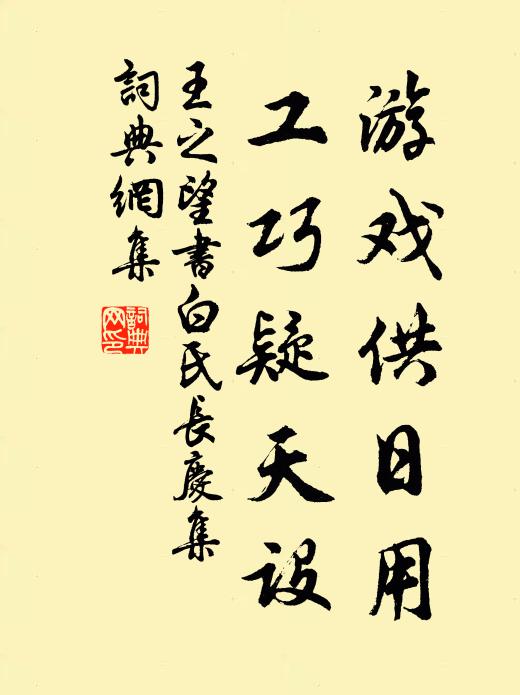 游戏供日用
工巧疑天设
王之望書白氏長慶集
詞典網集
詞典网印